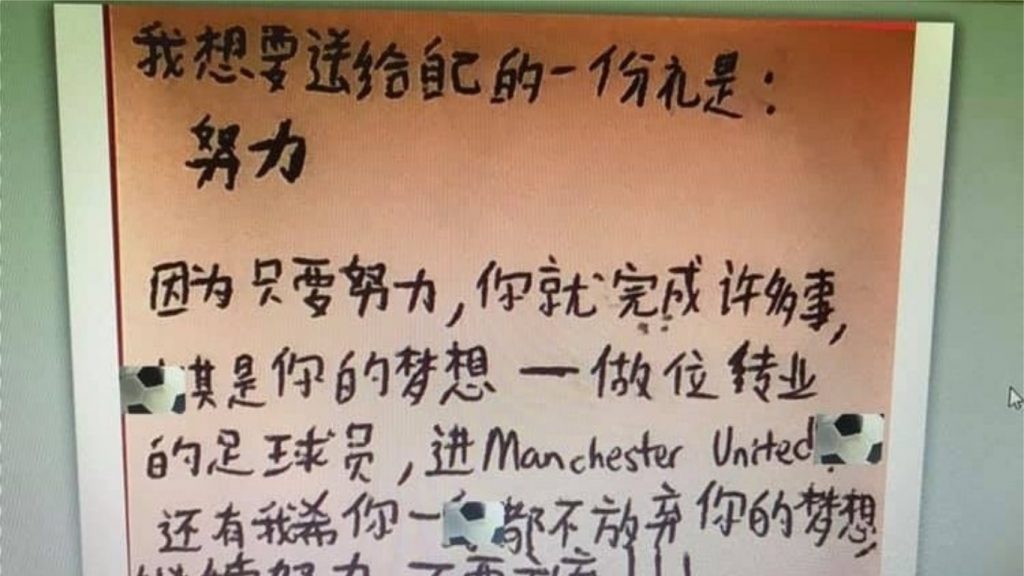 我想要送给自己的一份礼是：
努力
因为只要努力，你就完成许多事，
其是你的梦想 — 做位转业
的足球员，进Manchester United
还有我希你一都不放弃你的梦想，
继续努力 不要